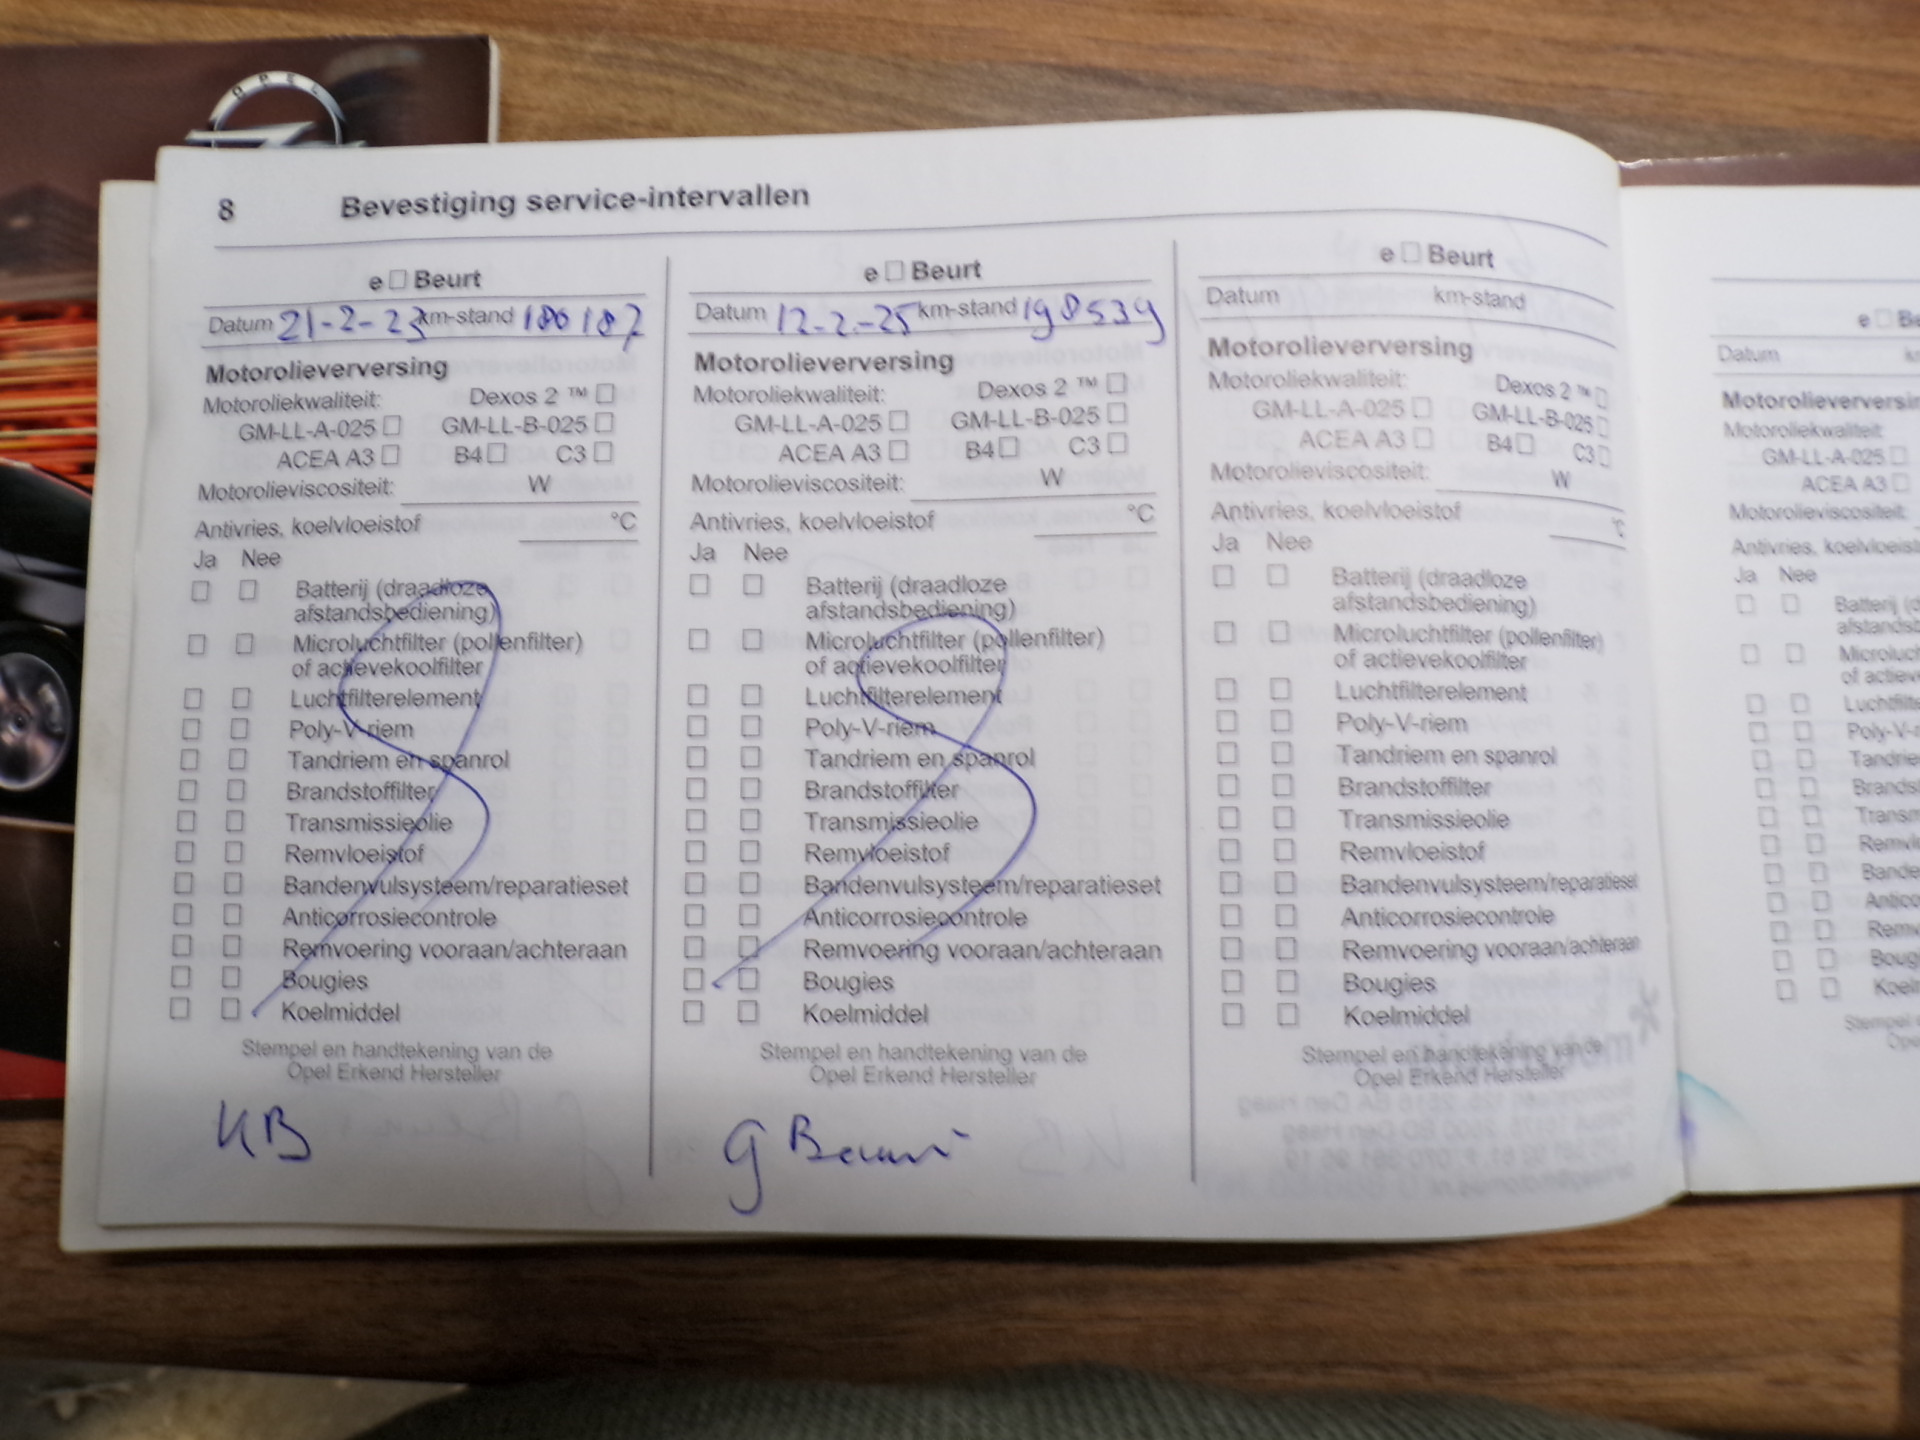 OPEL
8 Bevestiging service-intervallen
e □ Beurt
Datum 21-2-23 km-stand 186187
Motorolieverversing
Motoroliekwaliteit: Dexos 2 ™ □
GM-LL-A-025 □ GM-LL-B-025 □
ACEA A3 □ B4 □ C3 □
Motorolieviscositeit: W
Antivries, koelvloeistof °C
Ja Nee
□ □ Batterij (draadloze
afstandsbediening)
□ □ Microluchtfilter (pollenfilter)
of actievekoolfilter
□ □ Luchtfilterelement
□ □ Poly-V-riem
□ □ Tandriem en spanrol
□ □ Brandstoffilter
□ □ Transmissieolie
□ □ Remvloeistof
□ □ Bandenvulsysteem/reparatieset
□ □ Anticorrosiecontrole
□ □ Remvoering vooraan/achteraan
□ □ Bougies
□ □ Koelmiddel
Stempel en handtekening van de
Opel Erkend Hersteller
KB
e □ Beurt
Datum 12-2-25 km-stand 198539
Motorolieverversing
Motoroliekwaliteit: Dexos 2 ™ □
GM-LL-A-025 □ GM-LL-B-025 □
ACEA A3 □ B4 □ C3 □
Motorolieviscositeit: W
Antivries, koelvloeistof °C
Ja Nee
□ □ Batterij (draadloze
afstandsbediening)
□ □ Microluchtfilter (pollenfilter)
of actievekoolfilter
□ □ Luchtfilterelement
□ □ Poly-V-riem
□ □ Tandriem en spanrol
□ □ Brandstoffilter
□ □ Transmissieolie
□ □ Remvloeistof
□ □ Bandenvulsysteem/reparatieset
□ □ Anticorrosiecontrole
□ □ Remvoering vooraan/achteraan
□ □ Bougies
□ □ Koelmiddel
Stempel en handtekening van de
Opel Erkend Hersteller
G
e □ Beurt
Datum km-stand
Motorolieverversing
Motoroliekwaliteit: Dexos 2 ™ □
GM-LL-A-025 □ GM-LL-B-025 □
ACEA A3 □ B4 □ C3 □
Motorolieviscositeit: W
Antivries, koelvloeistof °C
Ja Nee
□ □ Batterij (draadloze
afstandsbediening)
□ □ Microluchtfilter (pollenfilter)
of actievekoolfilter
□ □ Luchtfilterelement
□ □ Poly-V-riem
□ □ Tandriem en spanrol
□ □ Brandstoffilter
□ □ Transmissieolie
□ □ Remvloeistof
□ □ Bandenvulsysteem/reparatieset
□ □ Anticorrosiecontrole
□ □ Remvoering vooraan/achteraan
□ □ Bougies
□ □ Koelmiddel
Stempel en handtekening van de
Opel Erkend Hersteller
e □ Be
Datum
Motorolieversin
Motoroliekwaliteit:
GM-LL-A-025 □
ACEA A3 □
Motorolieviscositeit:
Antivries, koelvloeist
Ja Nee
□ □ Batterij (d
afstandsb
□ □ Microluch
of actieve
□ □ Luchtfilte
□ □ Poly-V-r
□ □ Tandrie
□ □ Brandst
□ □ Transm
□ □ Remvlo
□ □ Bande
□ □ Antico
□ □ Remv
□ □ Boug
□ □ Koel
Stempel
Ope